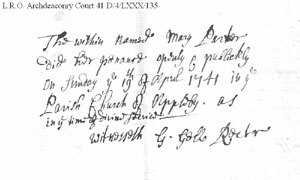 L.R.O. Archdeaconry Court 41 D/4/LXXX/135
The within Named Mary Parker
did her pennance openly & publickly
on Sunday ye 19th of April 1741 in ye
Parish Church of Appleby. as
in ye time of divine service
Witnesseth G. Gell Rectr